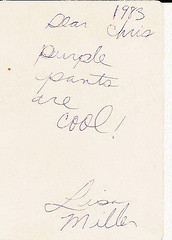 1983
Dear Chris
purple
pants
are
cool!
Lisa
Miller